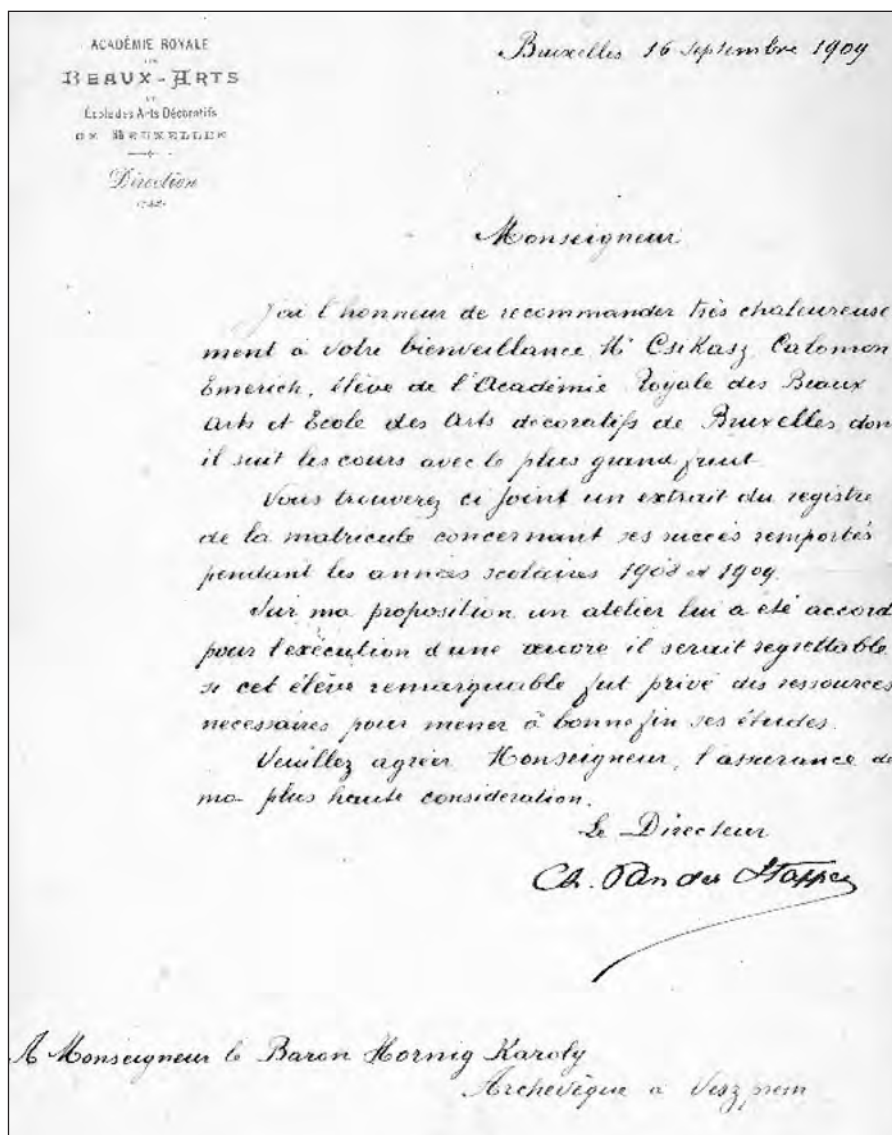 ACADÉMIE ROYALE
DES
BEAUX-ARTS
ET
École des Arts Décoratifs
DE BRUXELLES
Direction
Bruxelles 16 septembre 1909
Monseigneur
J'ai l'honneur de recommander très chaleureuse
ment à votre bienveillance Mr Csikasz Calomon
Emerich, élève de l'Académie Royale des Beaux
Arts et Ecole des Arts décoratifs de Bruxelles don
il suit les cours avec le plus grand fruit
Vous trouverez ci joint un extrait du registre
de la matricule concernant ses succès remportés
pendant les années scolaires 1908 et 1909.
Sur ma proposition un atelier lui a été accord
pour l'exécution d'une œuvre il serait regrettable
si cet élève remarquable fut privé des ressources
necessaires pour mener à bonne fin ses études.
Veuillez agréer Monseigneur, l'assurance de
ma plus haute consideration.
Le Directeur
Ch. Van der Stappen
A Monseigneur le Baron Hornig Karoly
Archevêque a Veszprem